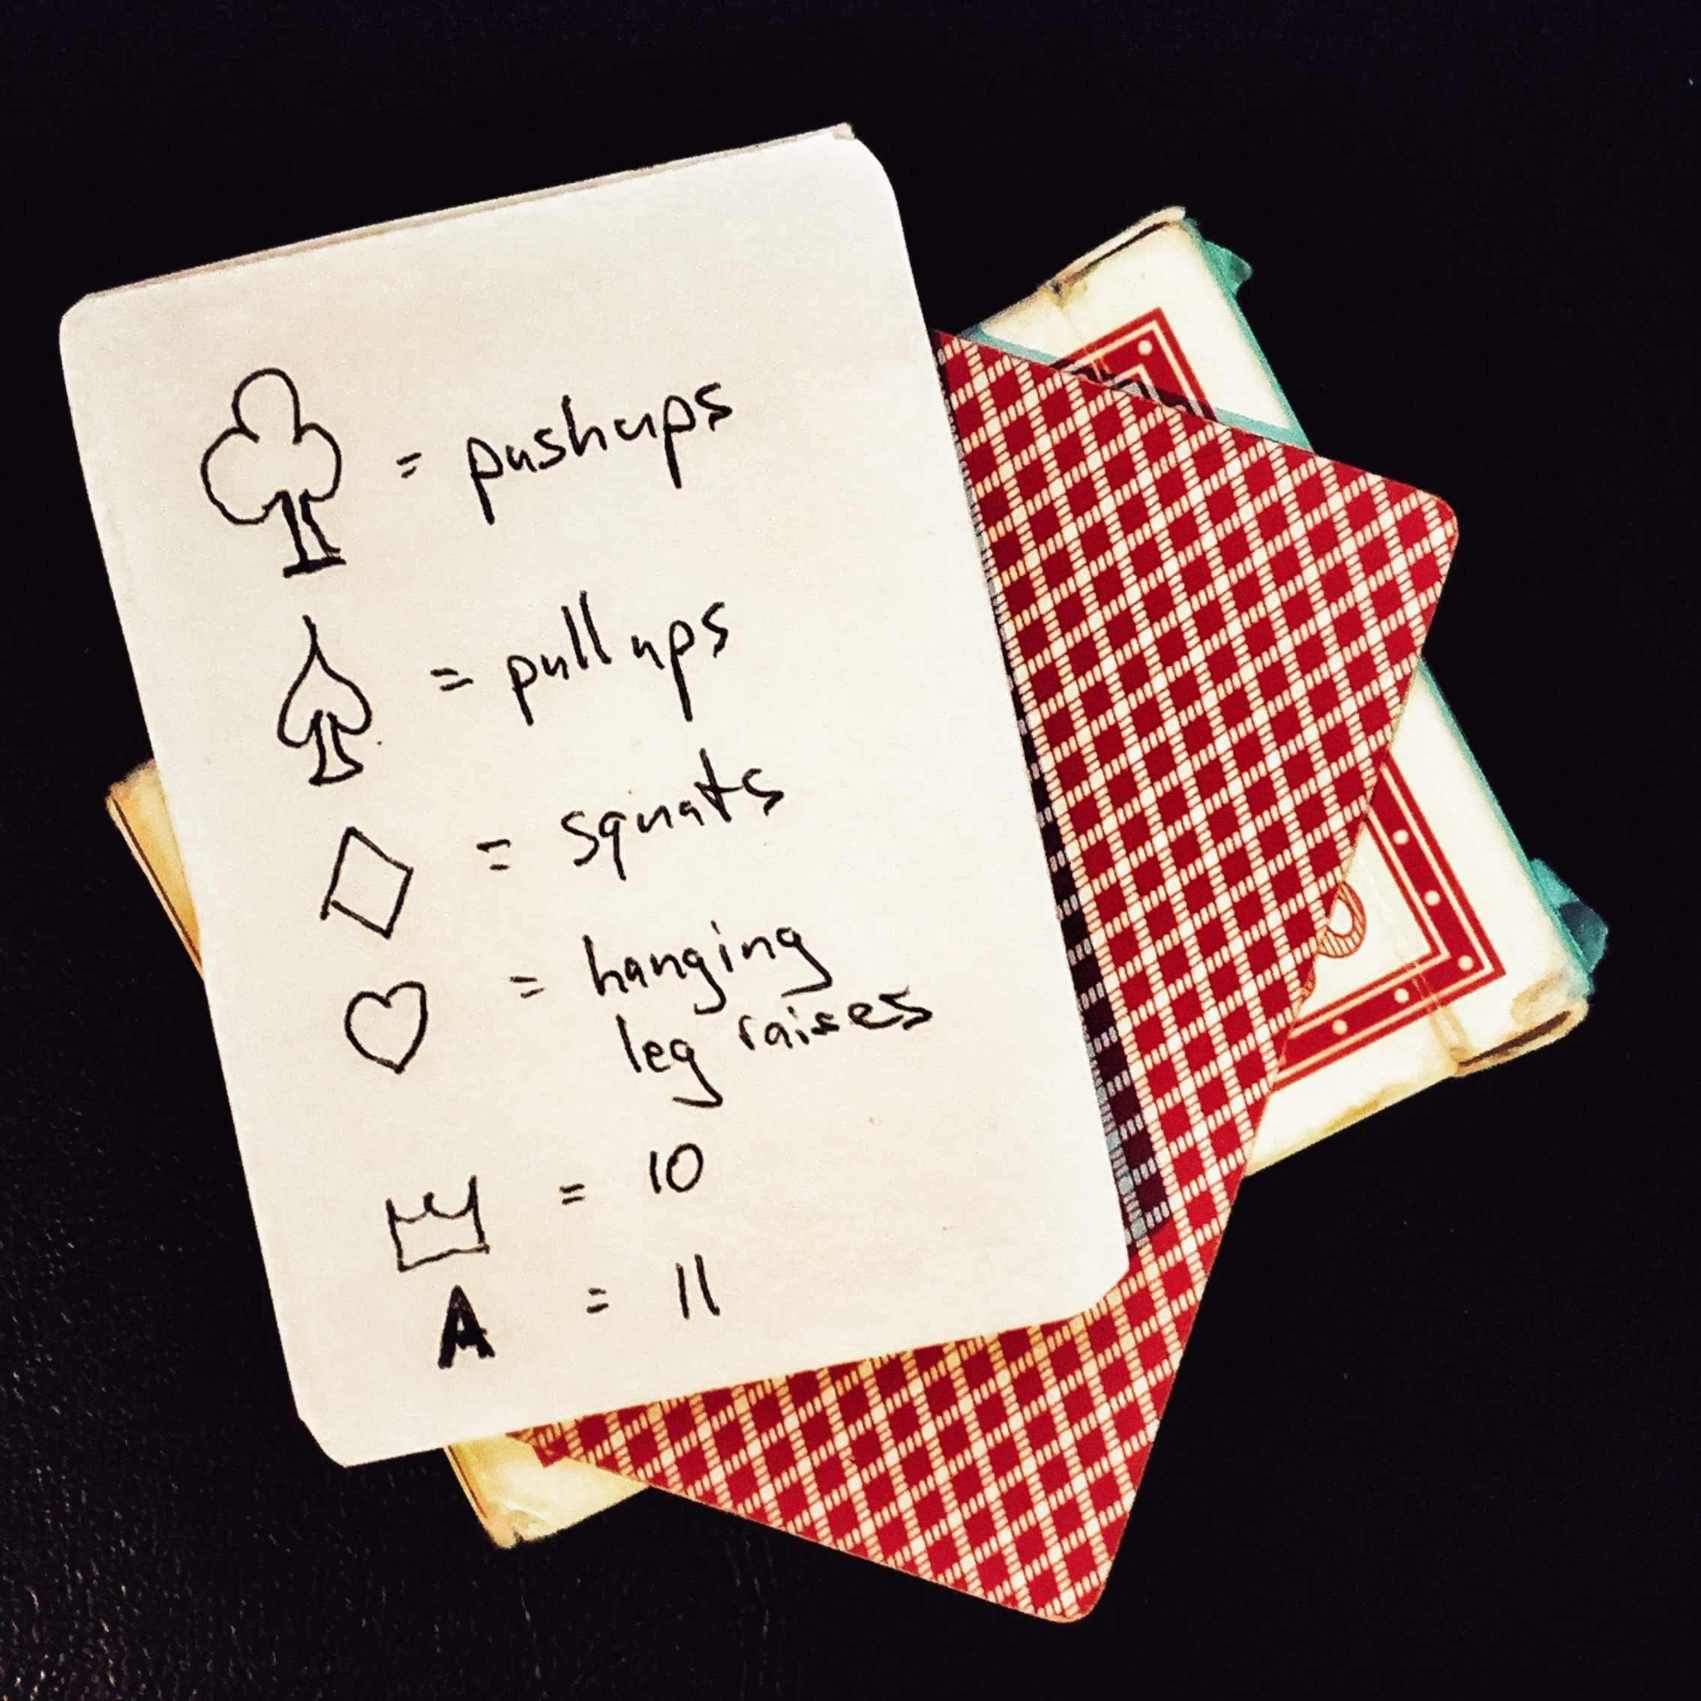 ♣ = pushups
♠ = pull ups
♢ = squats
♡ = hanging
leg raises
= 10
A = 11